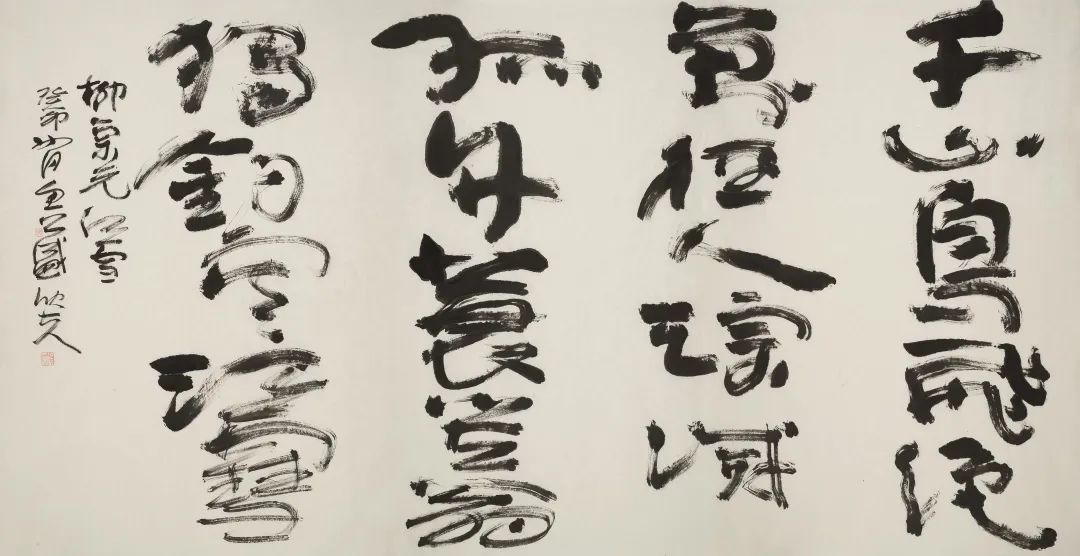 千山鳥飛絕
萬徑人蹤滅
孤舟蓑笠翁
獨釣寒江雪
柳宗元江雪
癸卯